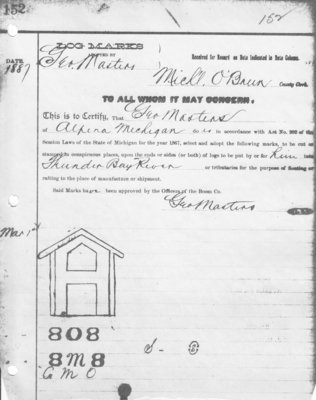 152
152
LOG MARKS
ADOPTED BY
DATE.
1887
Geo. Masters
Received for Record on Date Indicated in Date Column.
Mich'l O'Brien County Clerk.
TO ALL WHOM IT MAY CONCERN.
This is to Certify, That Geo Masters
of Alpena Michigan do in accordance with Act No.
Session Laws of the State of Michigan for the year 1867, select and adopt the following marks, to be cut or
stamped in conspicuous places, upon the ends or sides (or both) of logs to be put by or for him
into Thunder Bay River or tributaries for the purpose of floating or
rafting to the place of manufacture or shipment.
Said Marks have been approved by the Officers of the Boom Co.
Geo Masters
Mar 1st
H
808
8M8
G M O
S -